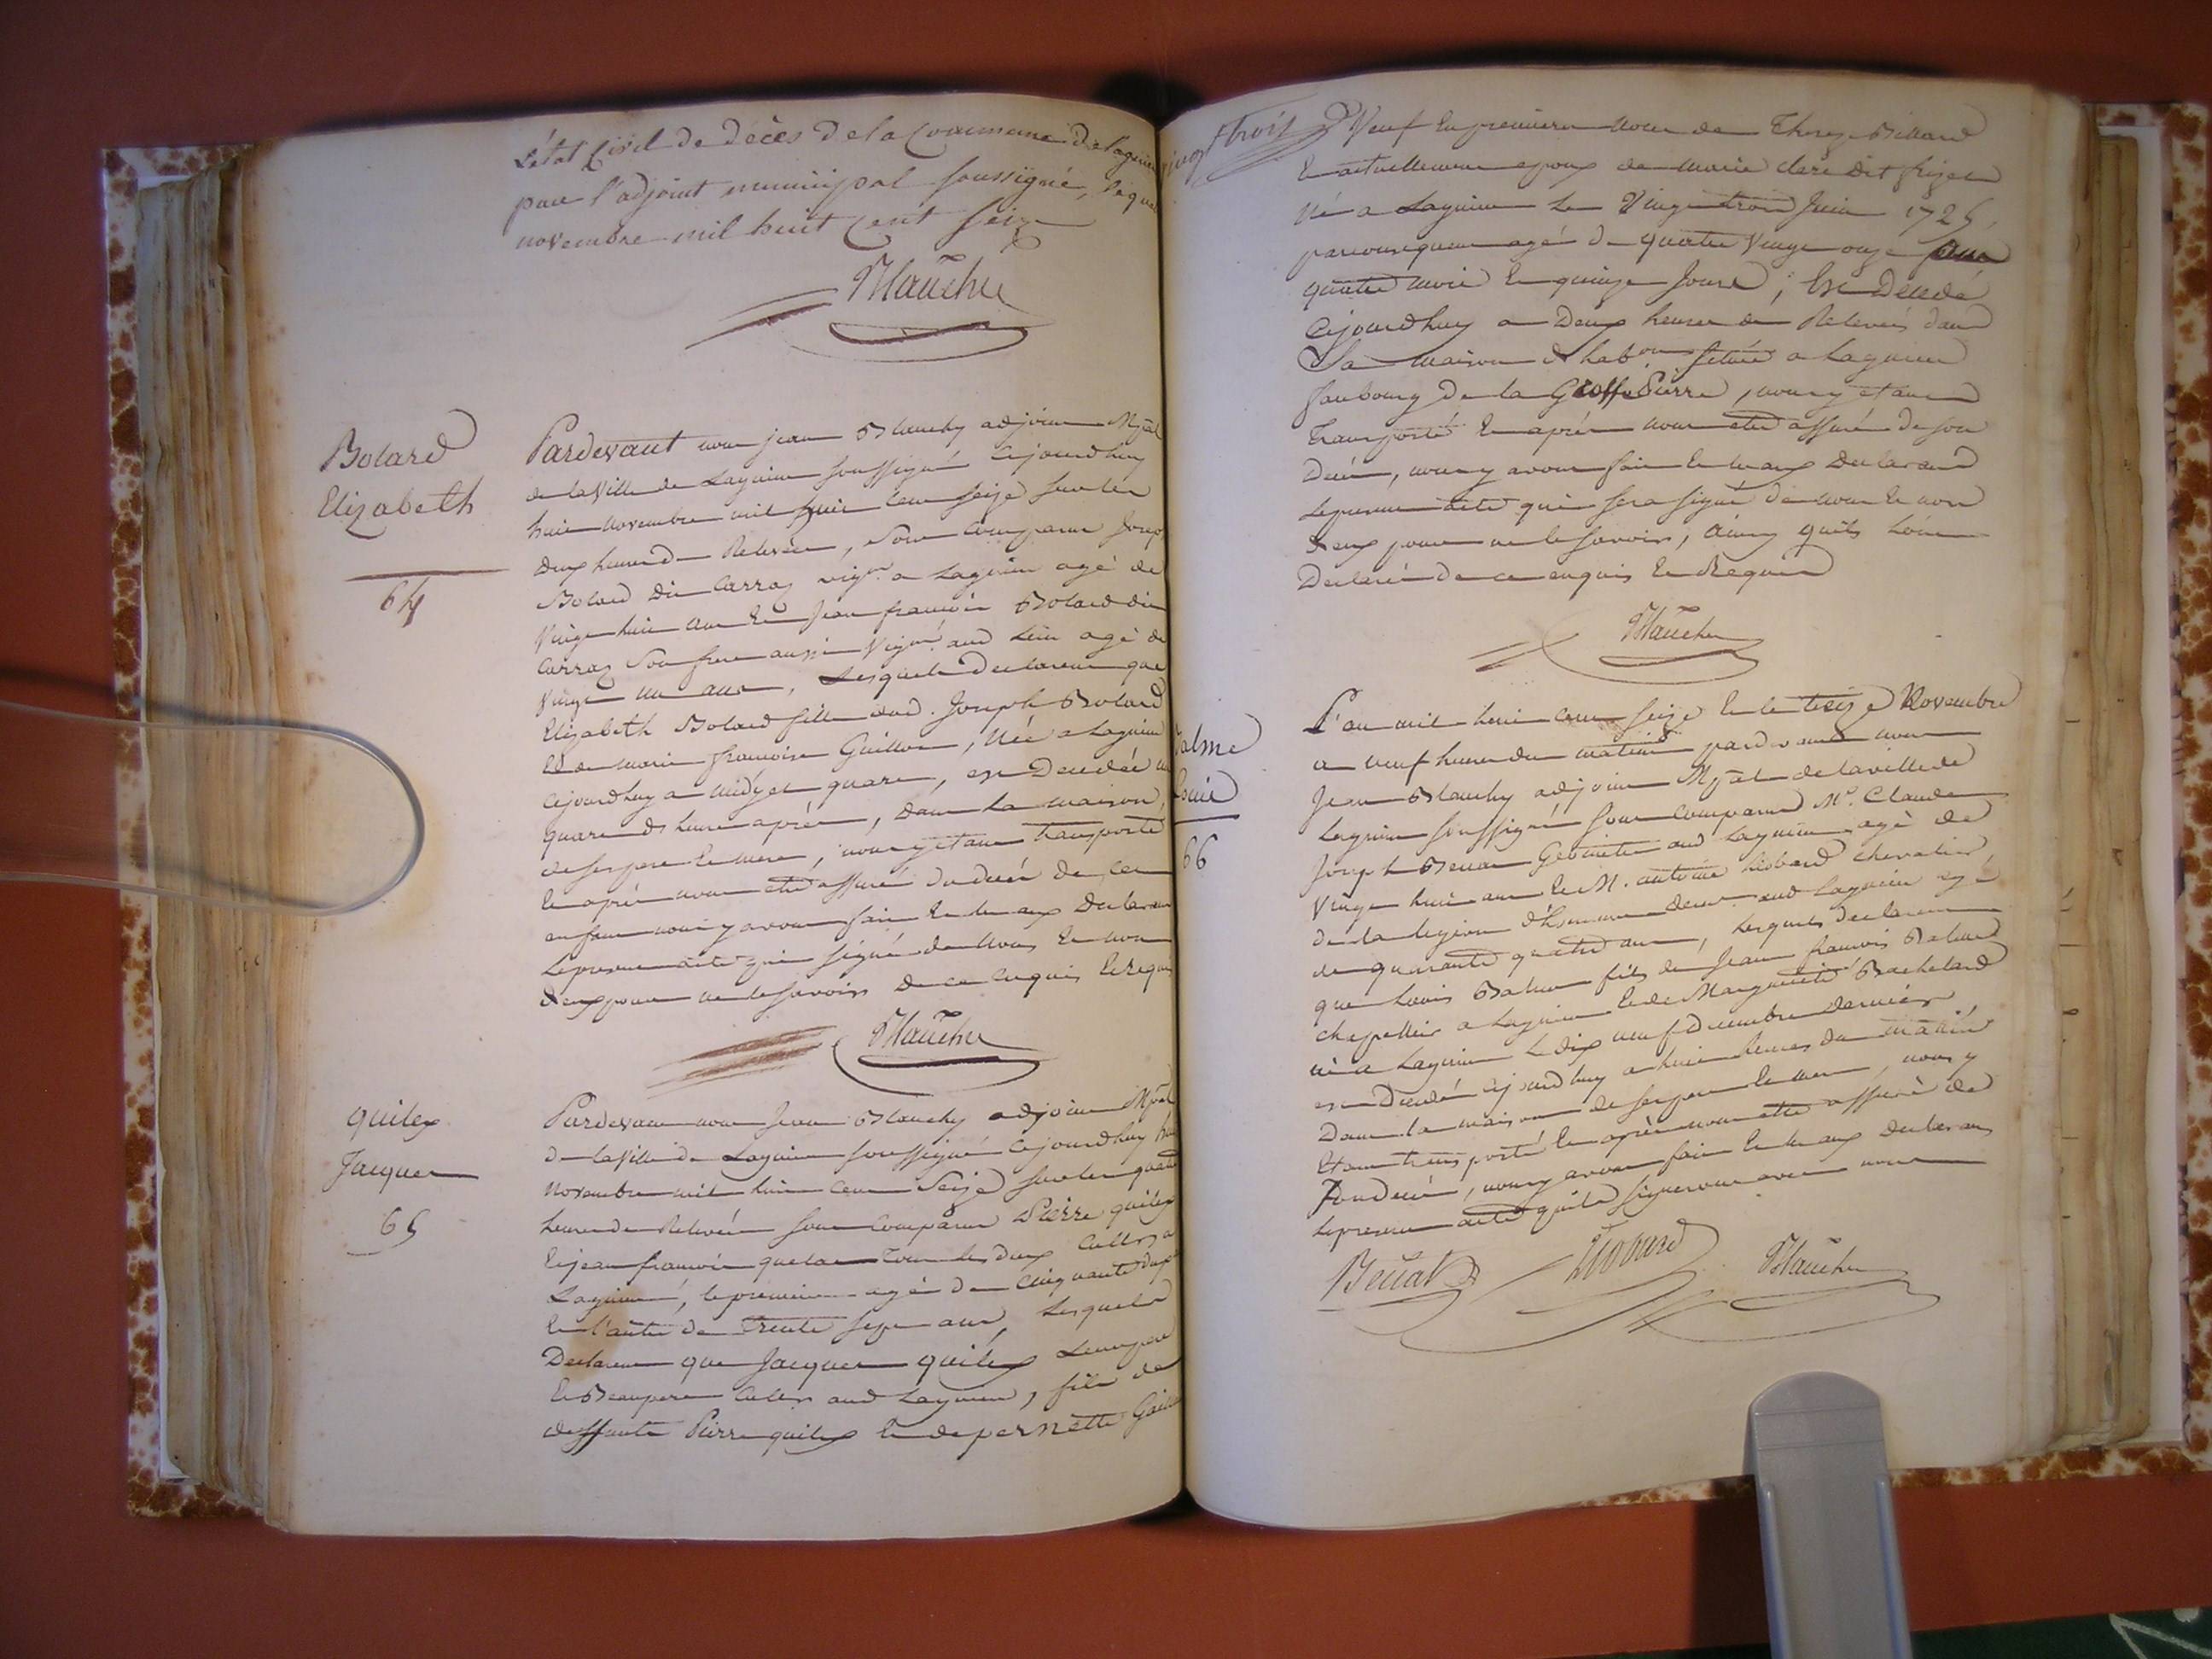 L'état Civil de décès de la Commune de Lagnieu
par l'adjoint municipal soussigné, le
novembre mil huit Cent Seize
Blanchy
Bolard
Elizabeth
64
Pardevant nous jean Blanchy adjoint Mpal
de la Ville de Lagnieu soussigné Cejourdhuy
huit novembre mil huit cent seize sur les
deux heures de Relevée, Sont comparus Joseph
Bolard dit Carraz vign.on a Lagnieu agé de
Vingt huit ans Et Jean francois Bolard dit
Carraz Son frere aussi Vign.on aud Lieu agé de
Vingt un ans, Lesquels declarent que
Elizabeth Bolard fille dud. Joseph Bolard
Et de marie francoise Guillon, Née a Lagnieu
Cejourdhuy a midy et quart, est Decedée un
quart d heure après, dans la maison
de ses pere Et mere, nous y étant transporté
Et après nous etre assuré du decès de cet
enfant nous y avons fait Lecture aux Declarants
Le present acte qui signé de Nous Et non
d eux pour ne le savoir de ce enquis Et requis
Blanchy
quilex
Jacques
65
Pardevant nous Jean Blanchy adjoint Mpal
de la Ville de Lagnieu soussigné Cejourdhuy huit
Novembre mil huit cent Seize sur les quatre
heures de Relevée sont comparus Pierre quilex
Et jean francois tous les deux Cult.rs a
Lagnieu, le premier agé de Cinquante
Et l'autre de Trente sept ans, Lesquels
Declarent que Jacques quilex Leur pere
Et Beaupere Cult.r aud Lagnieu, fils de
deffunte Pierre quilex Et de pernette
vingt trois
Veuf En premieres noces de Thereze Billard
Et actuellement epoux de marie clere dit frizon
Né a Lagnieu Le Vingt trois Juin 1725,
parconsequent agé de quatre Vingt onze ans
quatre mois Et quinze Jours; Est Decedé
Cejourdhuy a Deux heures de Relevée dans
Sa maison d hab.on située a Lagnieu
faubourg de la Grosse Pierre, nous y etant
transporté Et après nous etre assuré de son
Decès, nous y avons fait Lecture aux Declarants
Le present acte qui sera signé de nous Et non
d eux pour ne le savoir, ainsy qu'ils L'ont
Declaré de ce enquis Et Requis
Blanchy
Balme
Louis
66
L'an mil huit cent seize Et le treize Novembre
a neuf heures du matin pardevant nous
Jean Blanchy adjoint Mpal de la ville de
Lagnieu soussigné sont comparus M.r Claude
Joseph Benat Géometre aud Lagnieu agé de
Vingt huit ans Et M. antoine chevalier
de la legion d'honneur dem.t aud Lagnieu agé
de quarante quatre ans, Lesquels declarent
que Louis Balme fils de Jean francois Balme
chapellier a Lagnieu Et de Marguerite Bachelard
né a Lagnieu Le dix neuf decembre dernier,
est Decedé cejourdhuy a huit heures du matin
Dans la maison de ses pere Et mere, nous y
Etant transporté Et après nous etre assuré de
Son decès, nous y avons fait Lecture aux Declarants
Le present acte qu'ils signeront avec nous
Benat
Blanchy